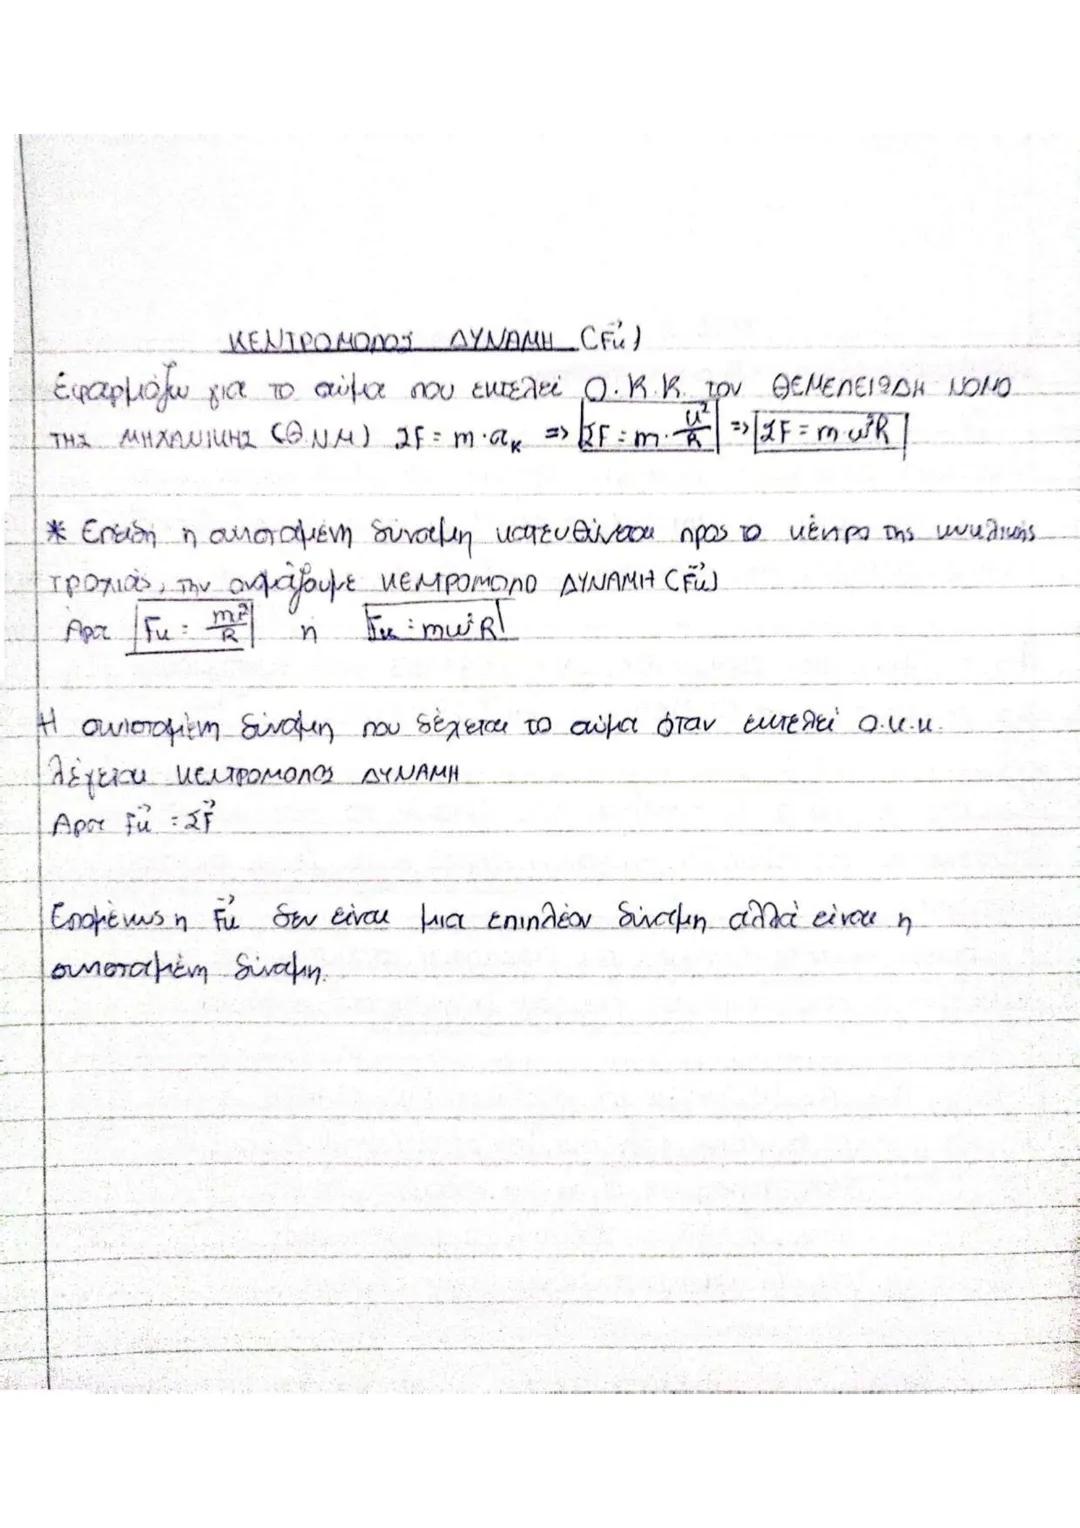 ΚΕΝΤΡΟΜΟΛΟΣ ΔΥΝΑΜΗ (Fκ⃗)
Εφαρμόζω για το σώμα που εκτελεί Ο.Κ.Κ. τον ΘΕΜΕΛΕΙΩΔΗ ΝΟΜΟ
ΤΗΣ ΜΗΧΑΝΙΚΗΣ (Θ.ΝΜ) ΣF = m·aκ => ΣF = m·υ²/R => ΣF = m·ω²R
* Επειδή η συνισταμένη δύναμη κατευθύνεται προς το κέντρο της κυκλικής
τροχιάς, την ονομάζουμε ΚΕΝΤΡΟΜΟΛΟ ΔΥΝΑΜΗ (Fκ⃗)
Άρα Fκ = mυ²/R ή Fκ = mω²R
Η συνισταμένη δύναμη που δέχεται το σώμα όταν εκτελεί ο.κ.κ.
λέγεται ΚΕΝΤΡΟΜΟΛΟΣ ΔΥΝΑΜΗ
Άρα Fκ⃗ = ΣF⃗
Επομένως η Fκ⃗ δεν είναι μια επιπλέον δύναμη αλλά είναι η
συνισταμένη δύναμη.